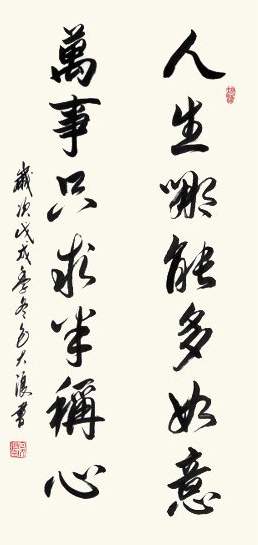 人生哪能多如意
萬事只求半稱心
歲次戊戌冬大浪書